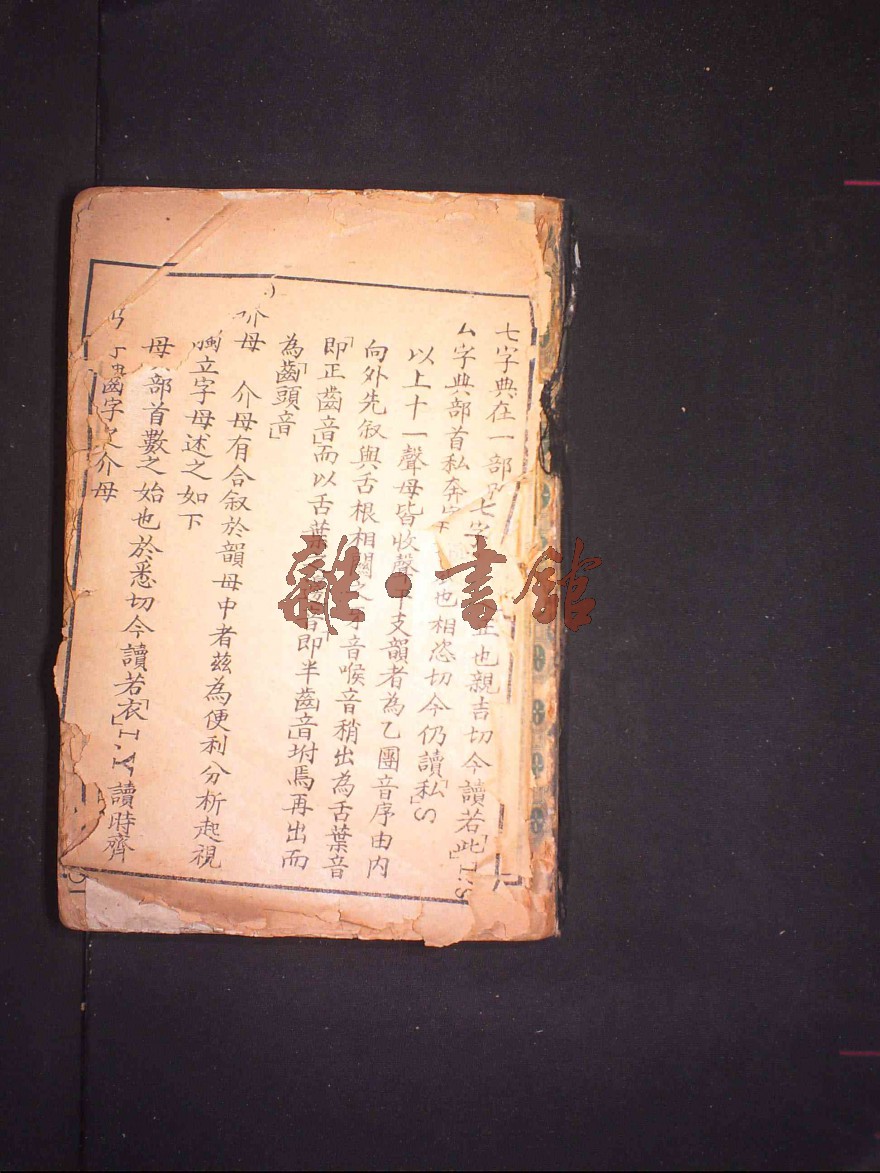 七字典在一部 七字 也親吉切今讀若「此」T'S
厶字典部首私奔字 也相恣切今仍讀「私」S
以上十一聲母皆收聲 支韻者為乙團音序由內
向外先叙與舌根相關之 音喉音稍出為舌葉音
「即正齒音」而以舌葉 即半齒音」坿焉再出而
為「齒頭音」
介母 介母有合叙於韻母中者茲為便利分析起視
獨立字母述之如下
母 部首數之始也於悉切今讀若「衣」I.Y.讀時齊
字 介母
雜·書館